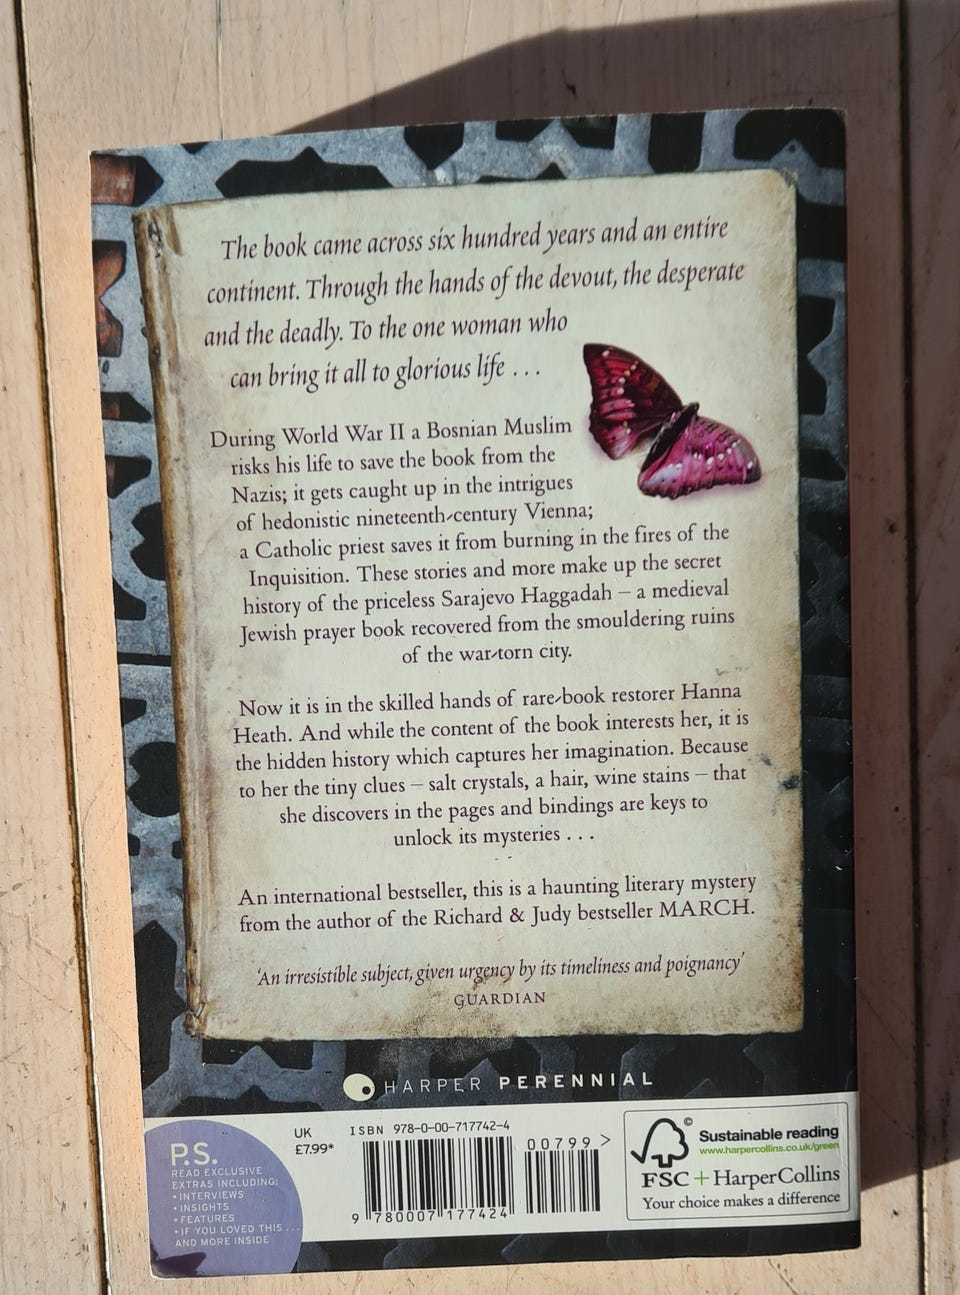 The book came across six hundred years and an entire
continent. Through the hands of the devout, the desperate
and the deadly. To the one woman who
can bring it all to glorious life . . .
During World War II a Bosnian Muslim
risks his life to save the book from the
Nazis; it gets caught up in the intrigues
of hedonistic nineteenth-century Vienna;
a Catholic priest saves it from burning in the fires of the
Inquisition. These stories and more make up the secret
history of the priceless Sarajevo Haggadah – a medieval
Jewish prayer book recovered from the smouldering ruins
of the war-torn city.
Now it is in the skilled hands of rare-book restorer Hanna
Heath. And while the content of the book interests her, it is
the hidden history which captures her imagination. Because
to her the tiny clues – salt crystals, a hair, wine stains – that
she discovers in the pages and bindings are keys to
unlock its mysteries . . .
An international bestseller, this is a haunting literary mystery
from the author of the Richard & Judy bestseller MARCH.
‘An irresistible subject, given urgency by its timeliness and poignancy’
GUARDIAN
HARPER PERENNIAL
P.S.
READ EXCLUSIVE
EXTRAS INCLUDING:
• INTERVIEWS
• INSIGHTS
• FEATURES
• IF YOU LOVED THIS . . .
AND MORE INSIDE
UK
£7.99*
ISBN 978-0-00-717742-4
00799 >
9 780007 177424
©
Sustainable reading
www.harpercollins.co.uk/green
FSC + HarperCollins
Your choice makes a difference